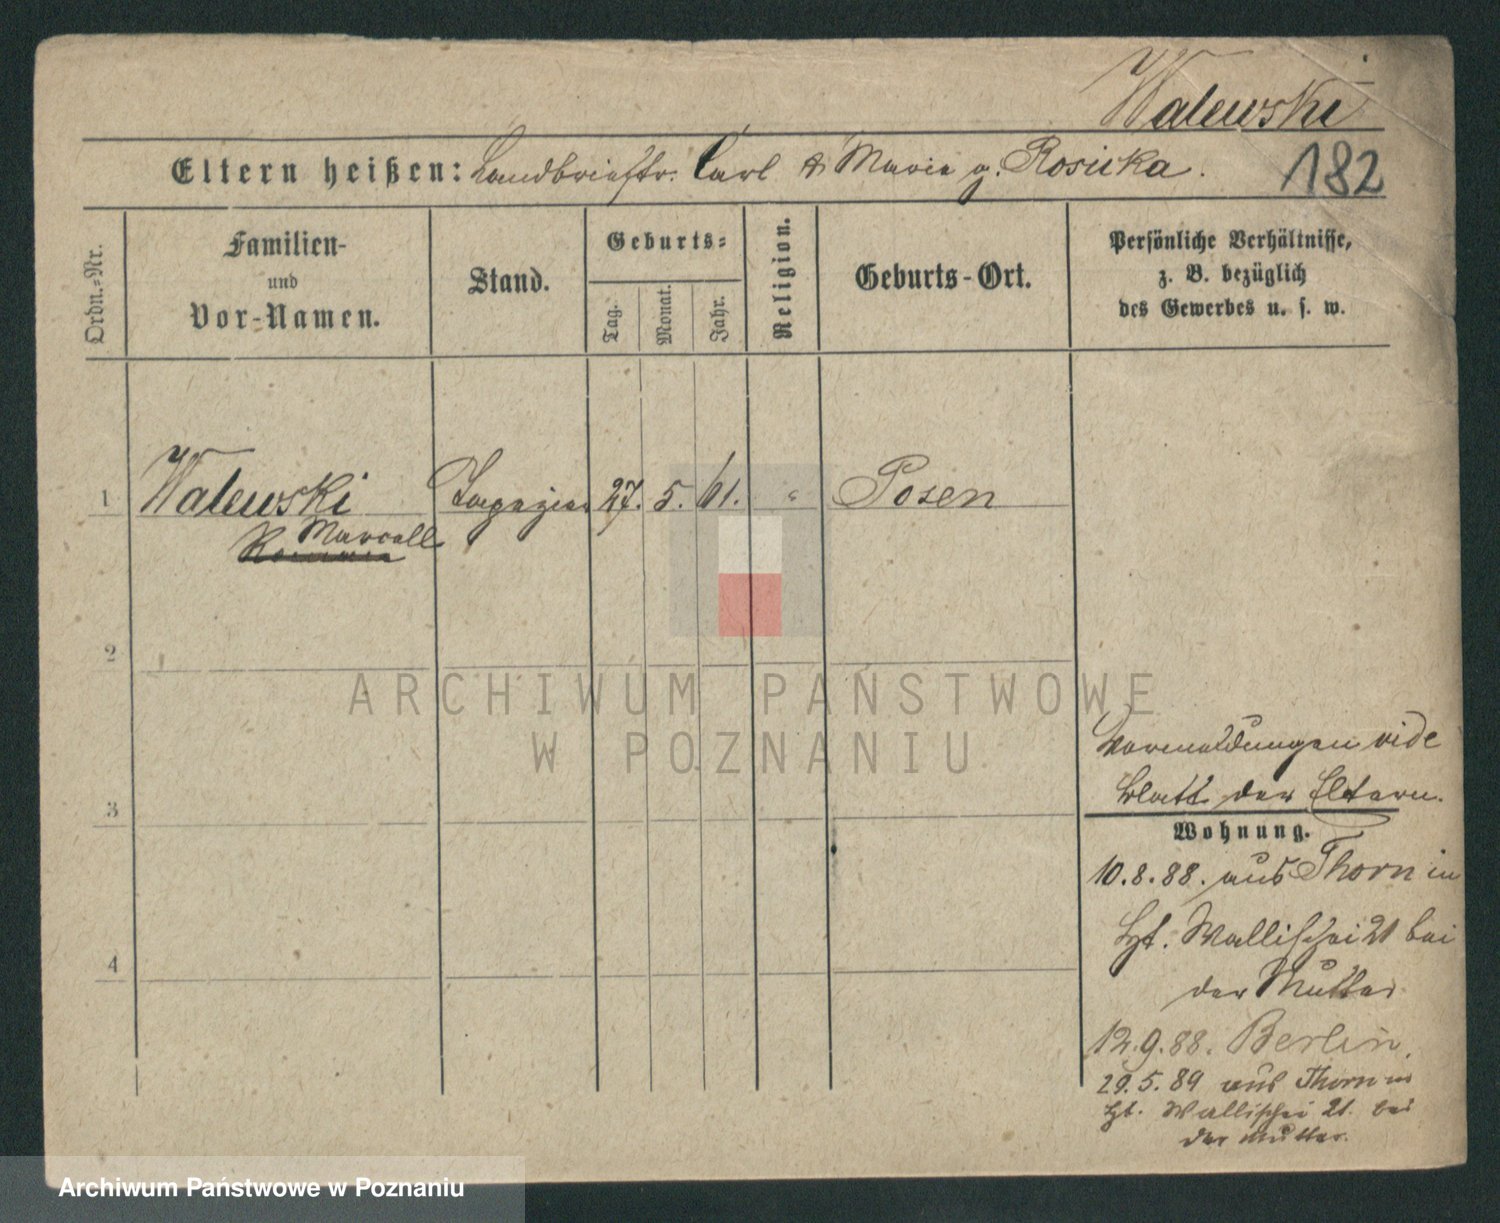 Walewski
Eltern heißen: Landbrieftr. Carl & Marie g. Rosicka.
182
Ordn.-Nr.
Familien-
und
Vor-Namen.
Stand.
Geburts-
Tag.
Monat.
Jahr.
Religion.
Geburts-Ort.
Persönliche Verhältnisse,
z. B. bezüglich
des Gewerbes u. s. w.
1 Walewski Tapezier 27. 5. 61. Posen
Marcell
2
ARCHIWUM PAŃSTWOWE
W POZNANIU
3
4
Vormeldungen vide
Blatt der Eltern.
Wohnung.
10.8.88. aus Thorn in
Wallischei 21 bei
der Mutter
12.9.88. Berlin.
29.5.89 aus Thorn in
Wallischei 21. bei
der Mutter.
Archiwum Państwowe w Poznaniu